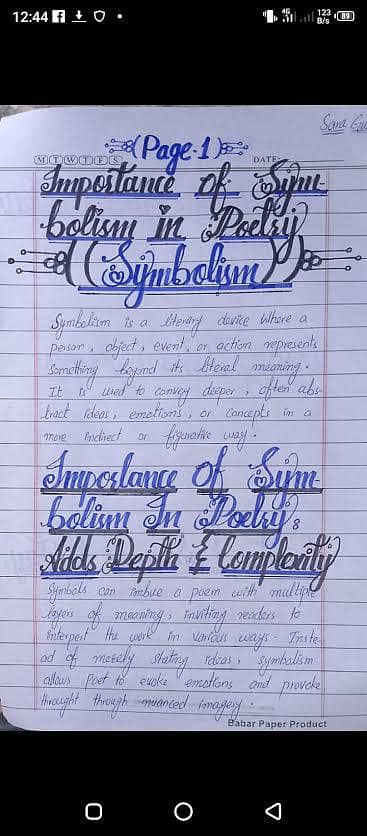 12:44
4G
123 B/s
89
Sara
(Page-1)
M T W T F S
DATE:
Importance of Sym
bolism in Poetry
((Symbolism))
Symbolism is a literary device where a
person, object, event, or action represents
something beyond its literal meaning.
It is used to convey deeper, often abs-
tract ideas, emotions, or concepts in a
more indirect or figurative way.
Importance Of Sym-
bolism In Poetry:
Adds Depth & Complexity
Symbols can imbue a poem with multiple
layers of meaning, inviting readers to
interpert the work in various ways. Inste-
ad of merely stating ideas, symbolism
allows poet to evoke emotions and provoke
throught through nuanced imagery.
Babar Paper Product